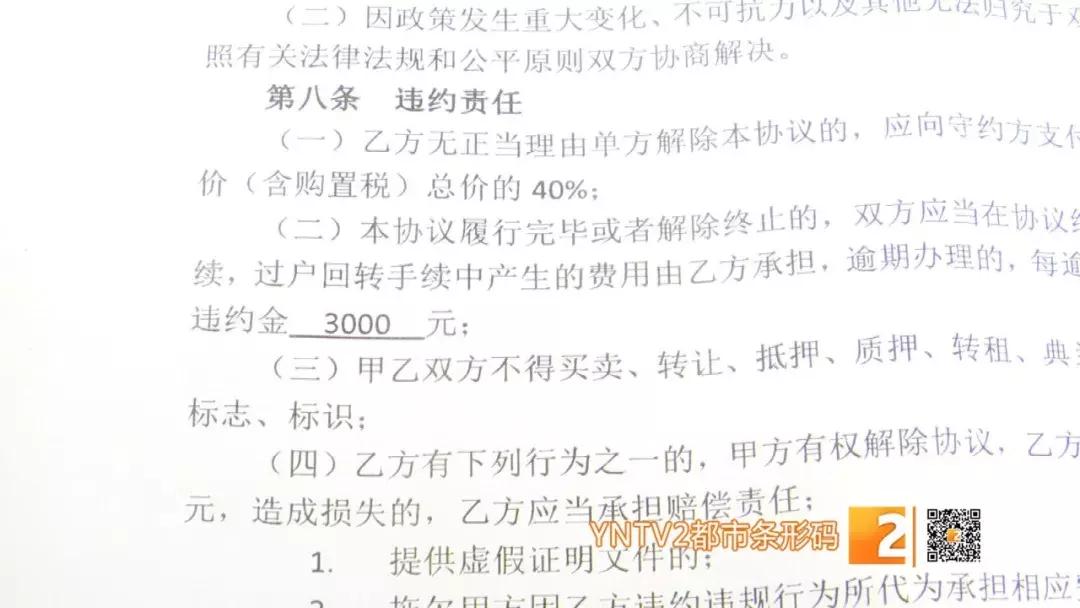 （二）因政策发生重大变化、不可抗力以及其他无法归究于双
照有关法律法规和公平原则双方协商解决。
第八条 违约责任
（一）乙方无正当理由单方解除本协议的，应向守约方支付
价（含购置税）总价的 40%；
（二）本协议履行完毕或者解除终止的，双方应当在协议终
续，过户回转手续中产生的费用由乙方承担，逾期办理的，每逾
违约金 3000 元；
（三）甲乙双方不得买卖、转让、抵押、质押、转租、典当
标志、标识；
（四）乙方有下列行为之一的，甲方有权解除协议，乙方
元，造成损失的，乙方应当承担赔偿责任；
YNTV2都市条形码 2
1. 提供虚假证明文件的；
2 拖欠甲方因乙方违约违规行为所代为承担相应